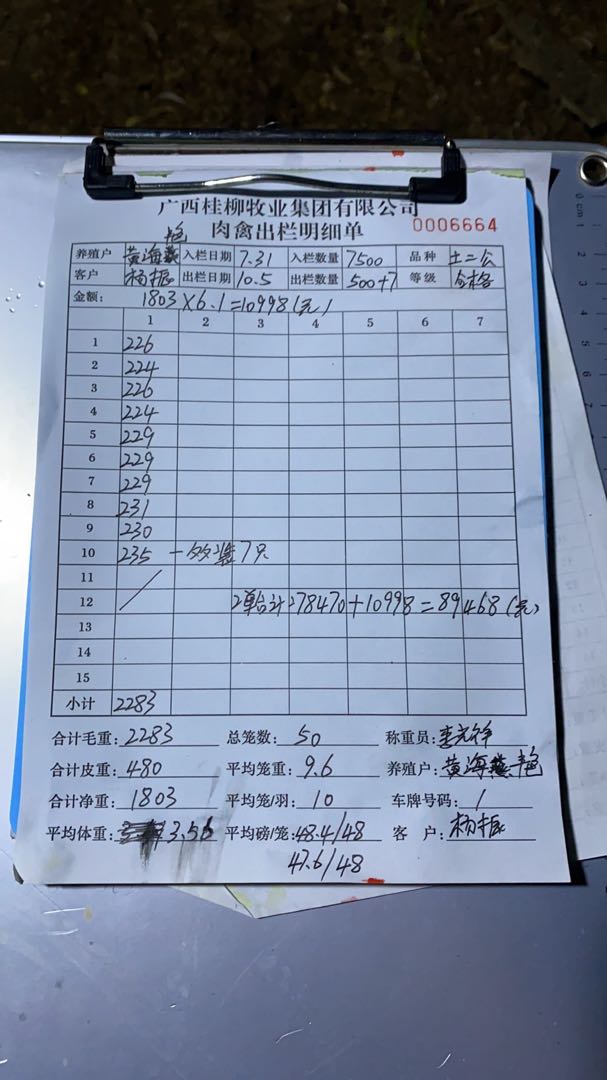 广西桂柳牧业集团有限公司
肉禽出栏明细单 0006664
养殖户 黄海燕 艳 入栏日期 7.31 入栏数量 7500 品种 土二公
客户 杨振 出栏日期 10.5 出栏数量 500+7 等级 合格
金额: 1803×6.1=10998(元)
1 2 3 4 5 6 7
1 226
2 224
3 226
4 224
5 229
6 229
7 229
8 231
9 230
10 235 7只
11
12 2单合计:78470+10998=89468(元)
13
14
15
小计 2283
合计毛重: 2283 总笼数: 50 称重员:
合计皮重: 480 平均笼重: 9.6 养殖户: 黄海燕 艳
合计净重: 1803 平均笼/羽: 10 车牌号码: 1
平均体重: 3.56 平均磅/笼: 48.4/48 客 户: 杨振
47.6/48
0 cm 1 2 3 4 5